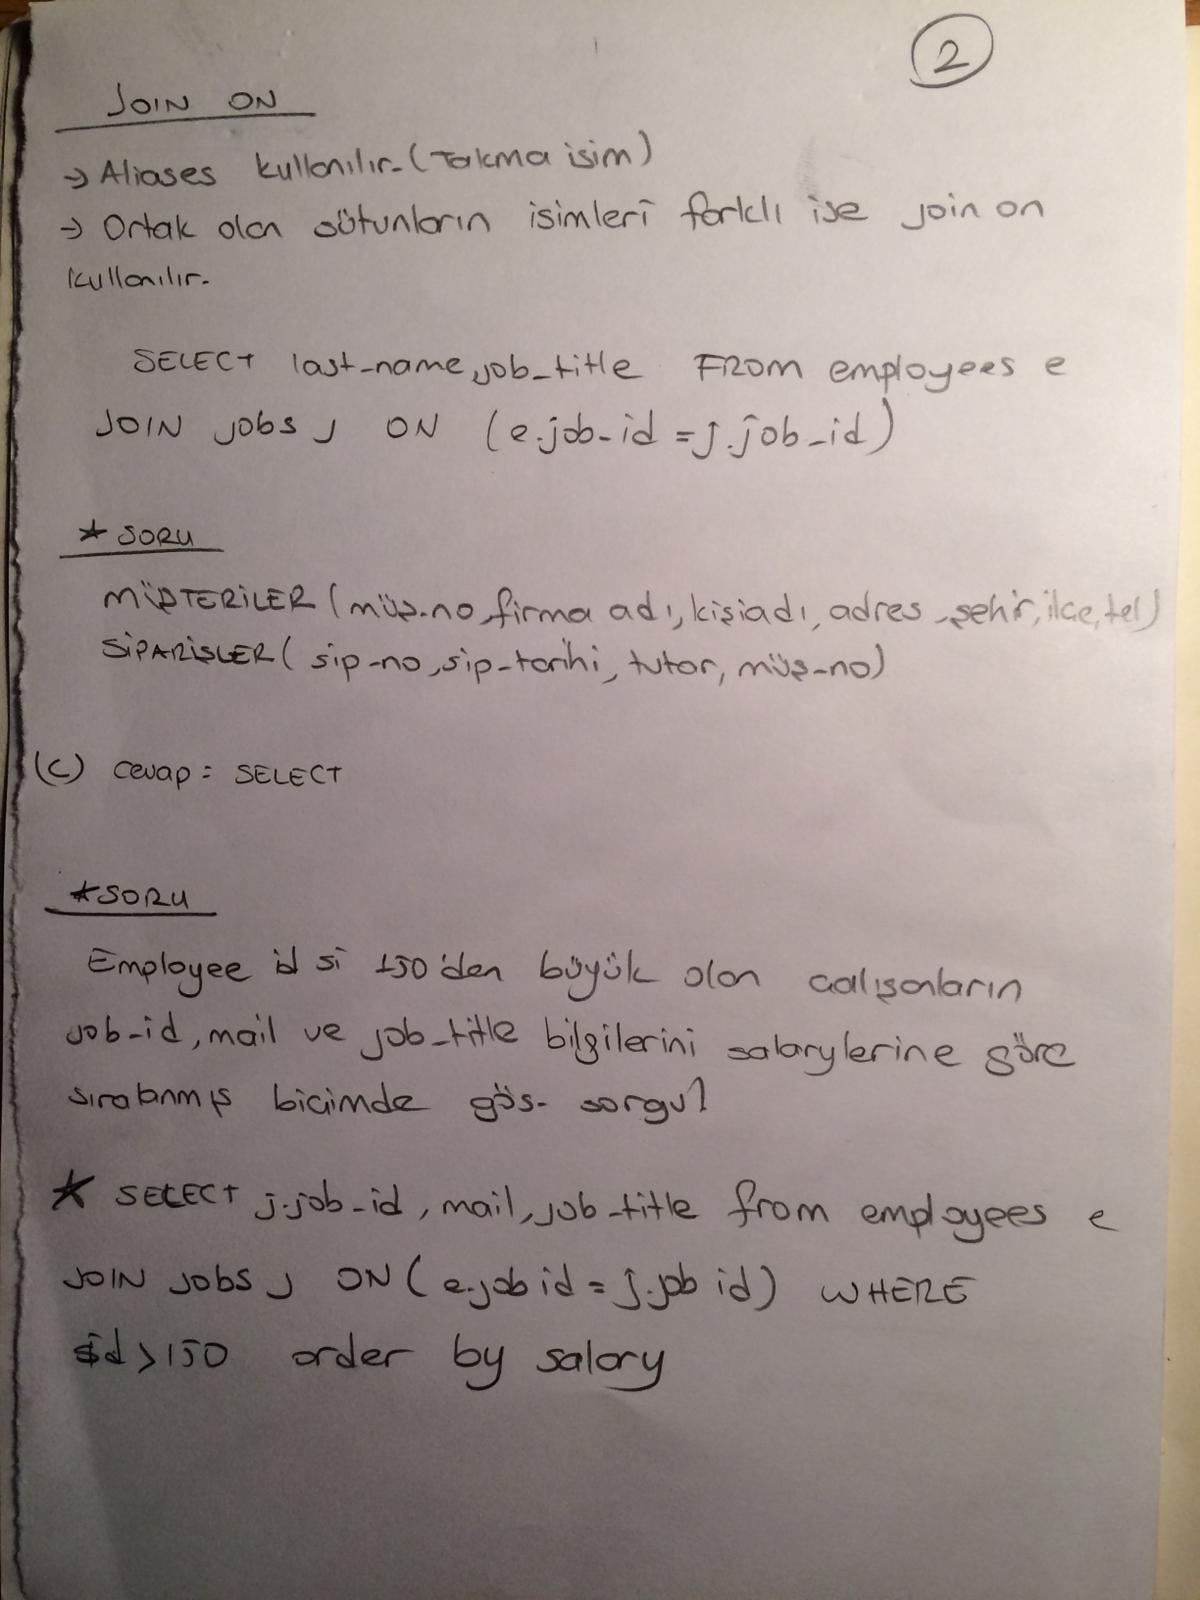 2
JOIN ON
→ Aliases kullanılır. (Takma isim)
→ Ortak olan sütunların isimleri farklı ise join on
kullanılır.
SELECT last_name, job_title FROM employees e
JOIN jobs j ON (e.job_id = j.job_id)
* SORU
MÜŞTERİLER (müş.no, firma adı, kişiadı, adres, şehir, ilçe, tel)
SİPARİŞLER ( sip-no, sip-tarihi, tutar, müş-no)
(C) cevap = SELECT
*SORU
Employee id si 150'den büyük olan çalışanların
job-id, mail ve job_title bilgilerini salarylerine göre
sıralanmış biçimde gös- sorgu?
* SELECT j.job_id, mail, job_title from employees e
JOIN jobs j ON ( e.job id = j.job id) WHERE
id > 150 order by salary